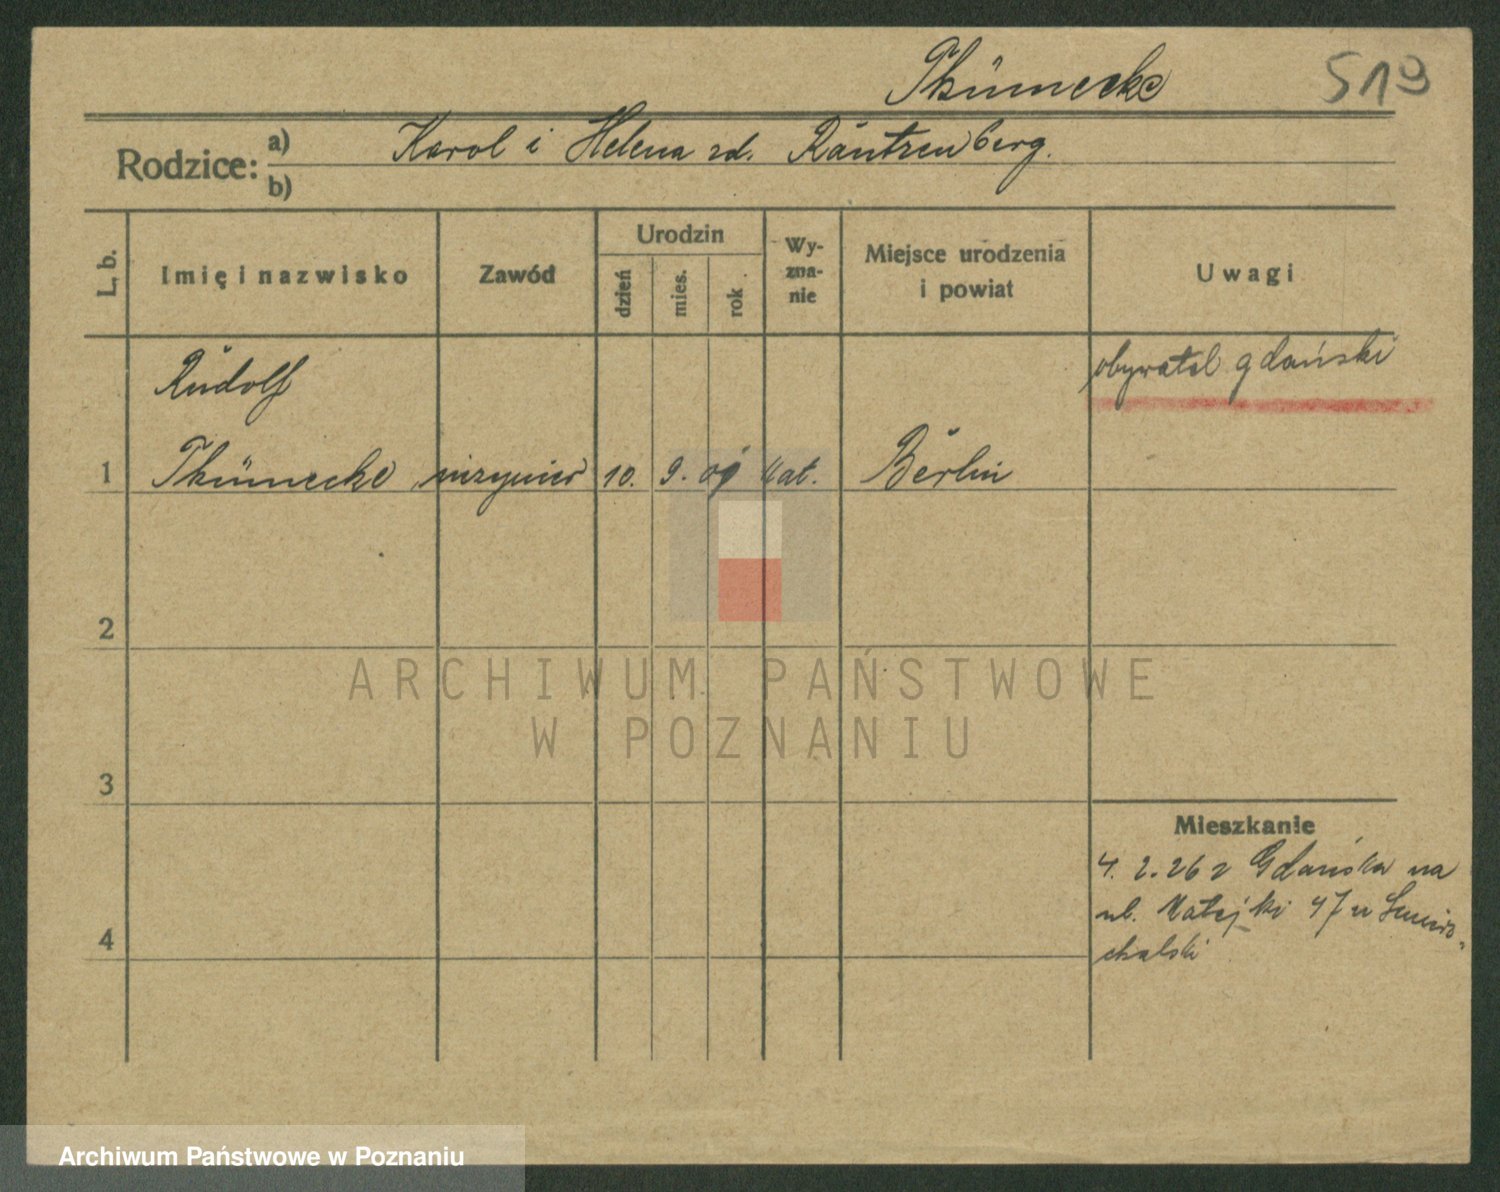 Thünnecke
519
Rodzice:
a) Karol i Helena zd. Räntzenberg.
b)
L, b.
Imię i nazwisko
Zawód
Urodzin
dzień
mies.
rok
Wy-
zna-
nie
Miejsce urodzenia
i powiat
Uwagi
Rudolf
obywatel gdański
1 Thünnecke inżynier 10. 9. 09 kat. Berlin
2
3
4
Mieszkanie
4. 2. 26 z Gdańska na
ul. Matejki 47 u
chalski
ARCHIWUM PAŃSTWOWE
W POZNANIU
Archiwum Państwowe w Poznaniu